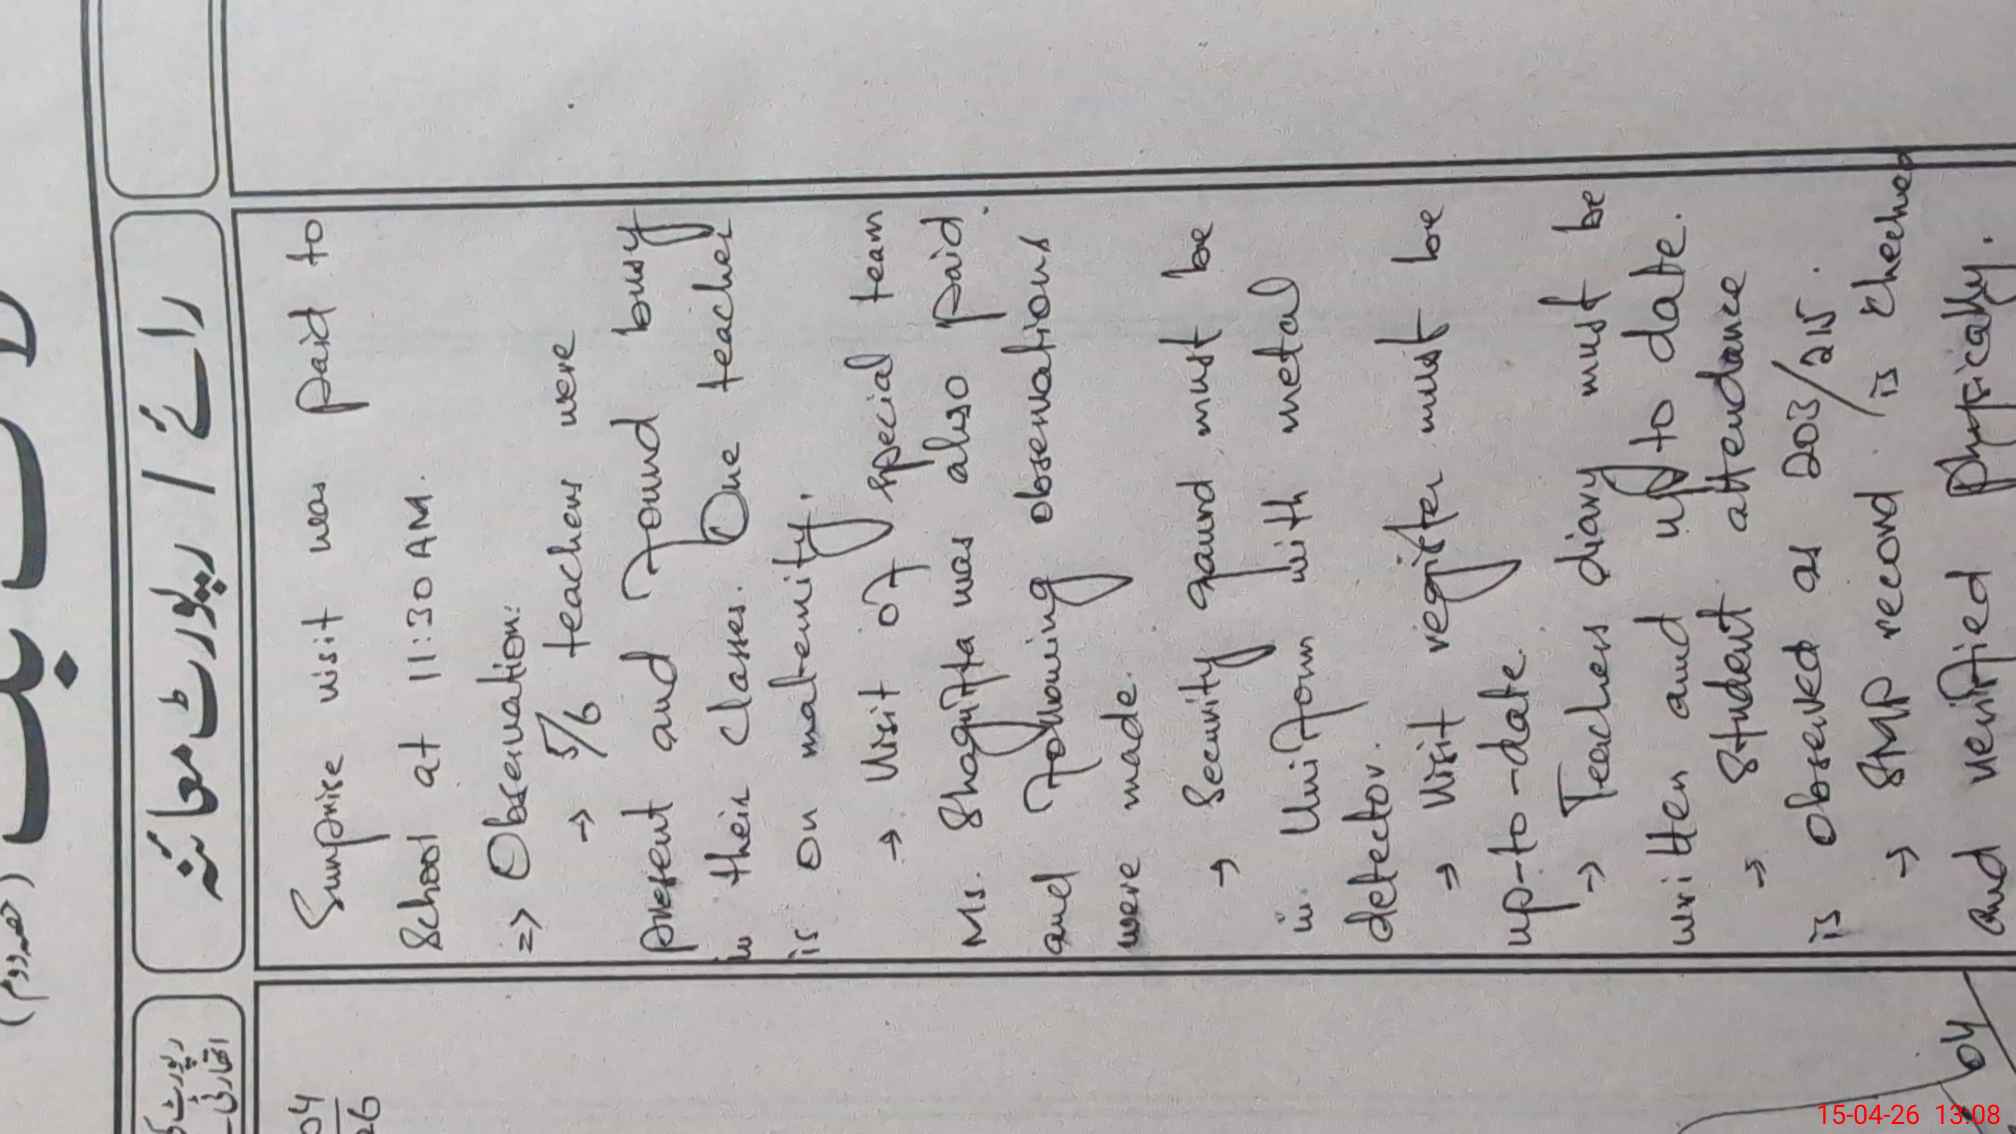 (حصہ دوم)
رائے / رپورٹ معائنہ
رپورٹ
04
26
Surprise visit was paid to
School at 11:30 AM.
=> Observation:
→ 5/6 teachers were
present and found busy
in their classes. One teacher
is on maternity.
→ Visit of special team
Ms. Shagufta was also paid.
and following observations
were made.
→ Security gaurd must be
in Uniform with metal
detector.
→ Visit register must be
up-to-date.
→ Teachers diary must be
written and up to date.
→ Student attendance
is observed as 203/215.
→ SMP record is checked
and verified physically.
04
15-04-26 13:08